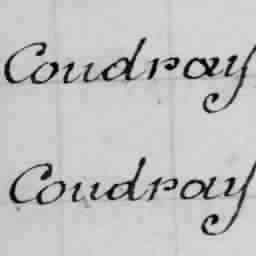 Coudray
Coudray